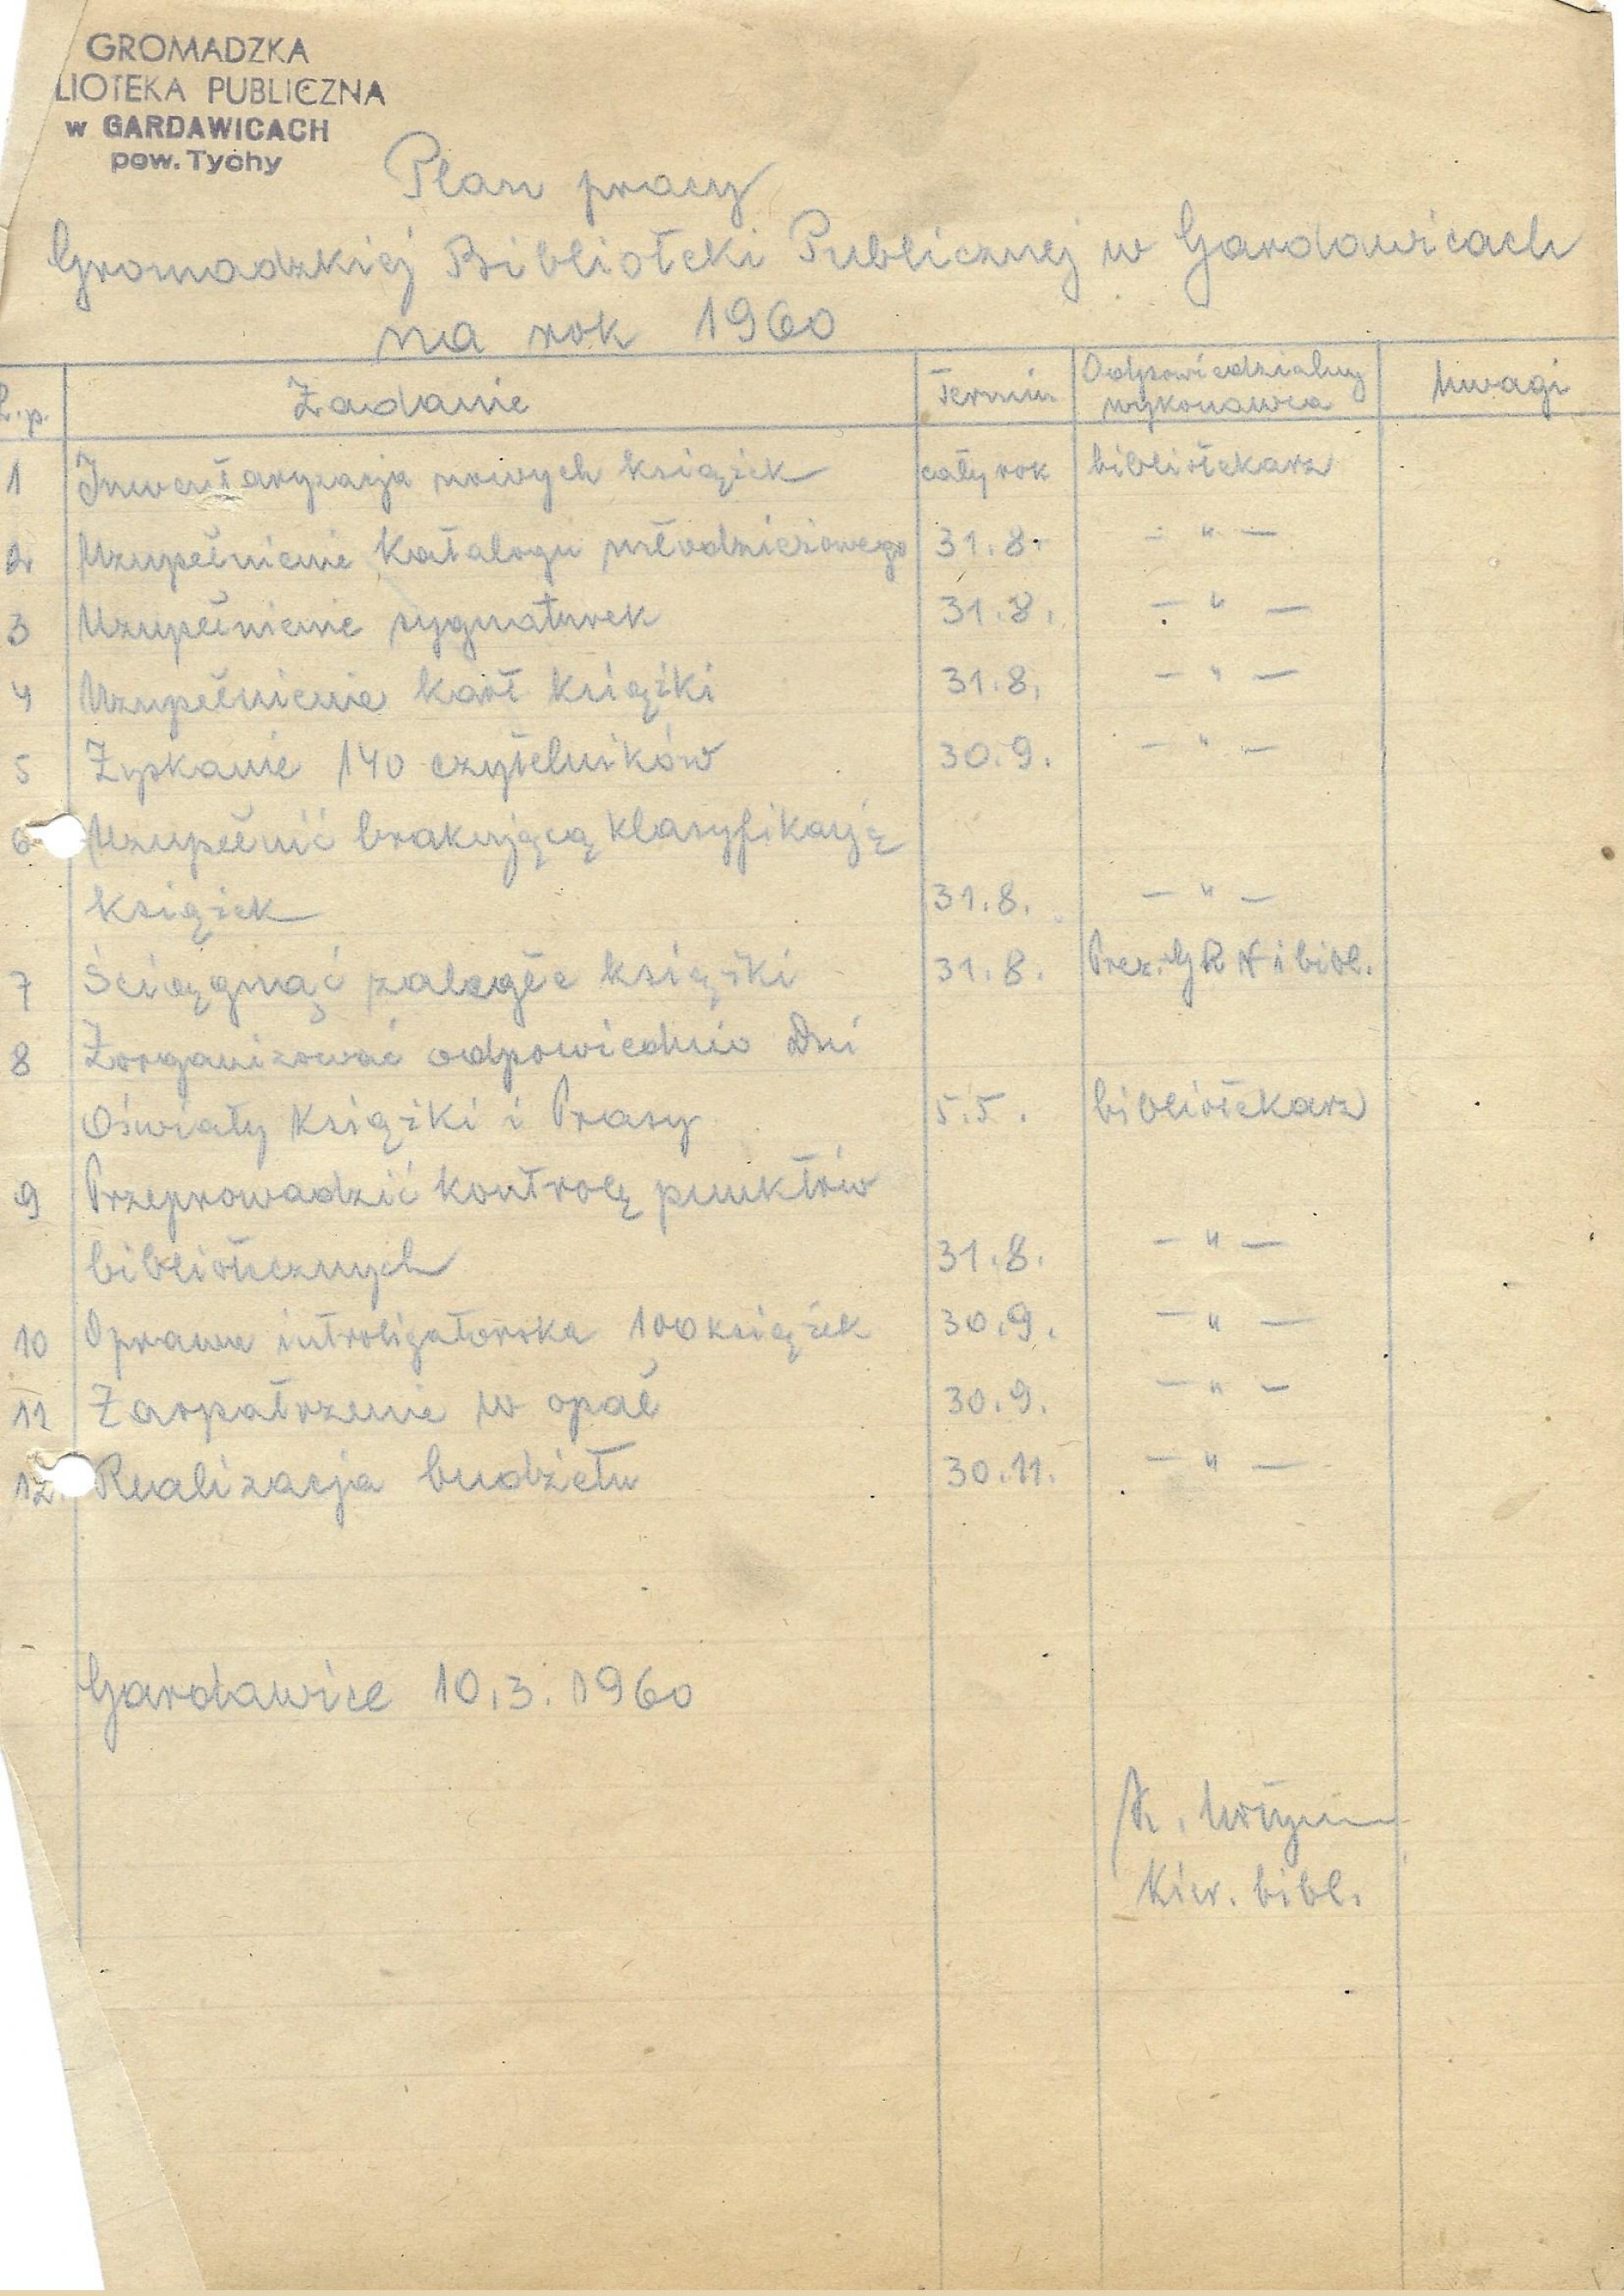 GROMADZKA
LIOTEKA PUBLICZNA
w GARDAWICACH
pow. Tychy
Plan pracy
Gromadzkiej Biblioteki Publicznej w Gardawicach
na rok 1960
L.p. Zadanie Termin Odpowiedzialny wykonawca Uwagi
1 Inwentaryzacja nowych książek cały rok bibliotekarz
2 Uzupełnienie katalogu młodzieżowego 31.8. - " -
3 Uzupełnienie sygnaturek 31.8. - " -
4 Uzupełnienie kart książki 31.8. - " -
5 Zyskanie 140 czytelników 30.9. - " -
6 Uzupełnić brakującą klasyfikację
książek 31.8. - " -
7 Ściągnąć zaległe książki 31.8. Prez. GRN i bibl.
8 Zorganizować odpowiednio Dni
Oświaty Książki i Prasy 5.5. bibliotekarz
9 Przeprowadzić kontrolę punktów
bibliotecznych 31.8. - " -
10 Oprawa introligatorska 100 książek 30.9. - " -
11 Zaopatrzenie w opał 30.9. - " -
12. Realizacja budżetu 30.11. - " -
Gardawice 10.3.1960
K.
Kier. bibl.